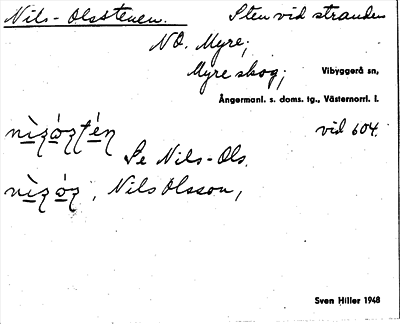 Nils-Olsstenen. Sten vid stranden
NO. Myre;
Myreskog; Vibyggerå sn,
Ångermanl. s. doms. tg., Västernorrl. l.
vid 604.
Se Nils-Ols.
Nils Olsson,
Sven Hiller 1948